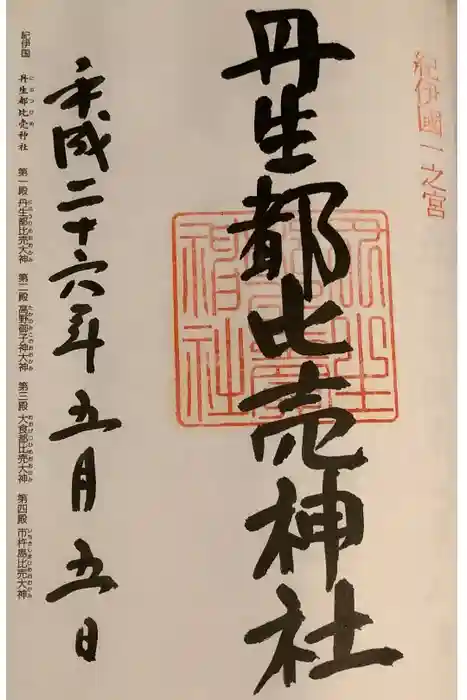 紀伊國一之宮
丹生都比売神社
丹生都比売神社
平成二十六年五月五日
紀伊国 丹生都比売神社 第一殿 丹生都比売大神 第二殿 高野御子神大神 第三殿 大食都比売大神 第四殿 市杵島比売大神